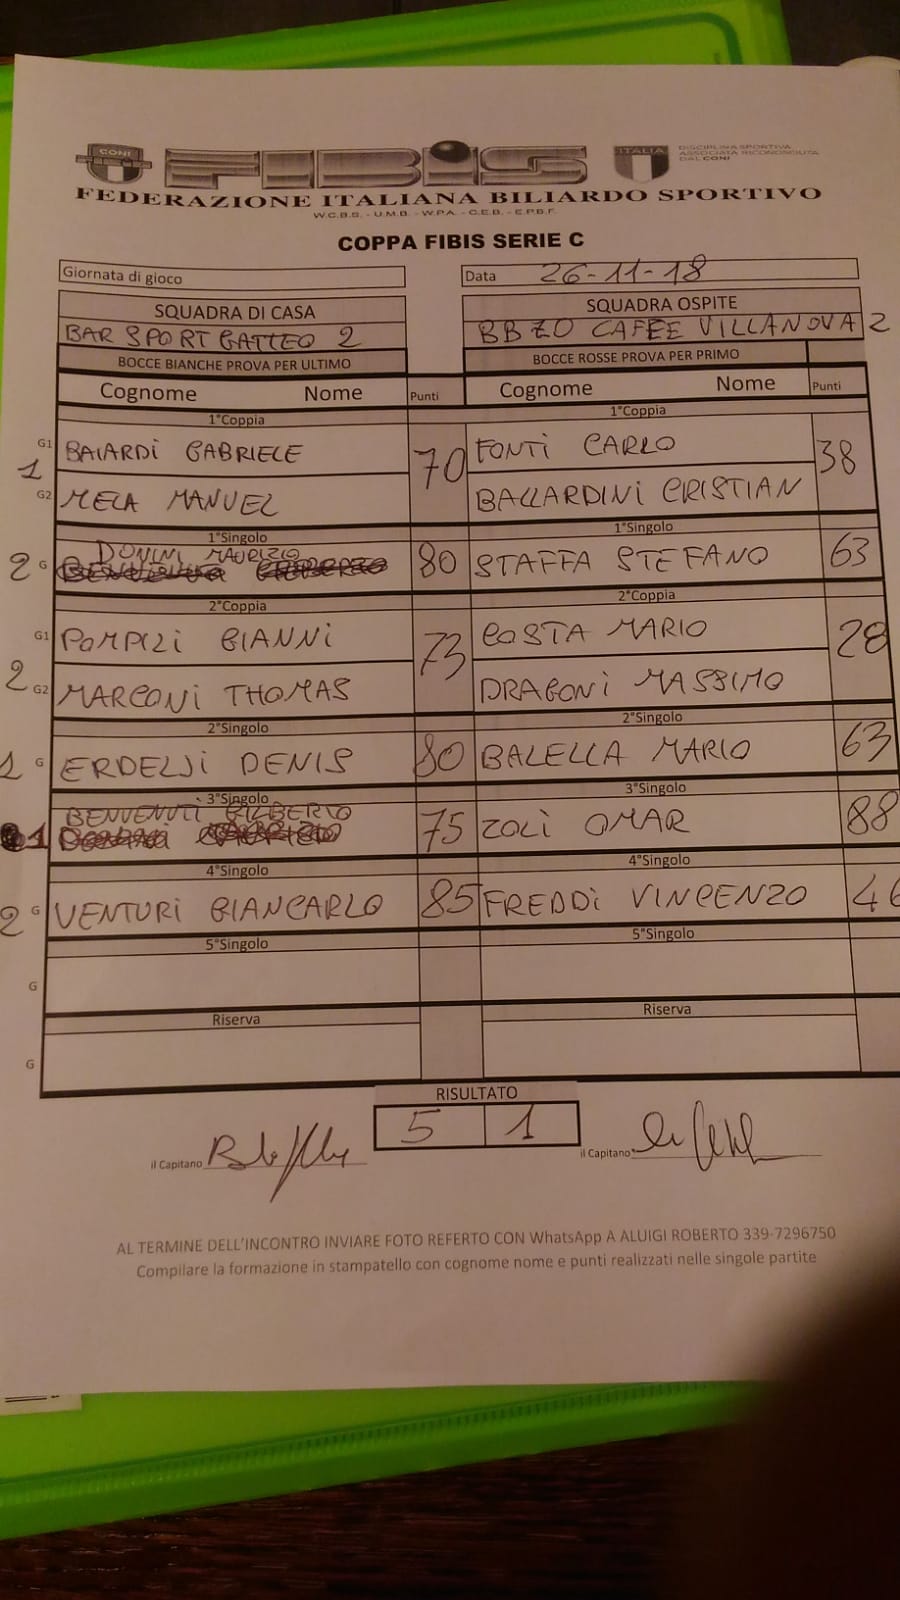 CONI FIBIS ITALIA DISCIPLINA SPORTIVA
ASSOCIATA RICONOSCIUTA
DAL CONI
FEDERAZIONE ITALIANA BILIARDO SPORTIVO
W.C.B.S. - U.M.B. - W.P.A. - C.E.B. - E.P.B.F.
COPPA FIBIS SERIE C
Giornata di gioco Data 26-11-18
SQUADRA DI CASA SQUADRA OSPITE
BAR SPORT GATTEO 2 BBZO CAFÈE VILLANOVA 2
BOCCE BIANCHE PROVA PER ULTIMO BOCCE ROSSE PROVA PER PRIMO
Cognome Nome Punti Cognome Nome Punti
1°Coppia 1°Coppia
G1 BAIARDI GABRIELE 70 FONTI CARLO 38
1
G2 MELA MANUEL BALLARDINI CRISTIAN
1°Singolo 1°Singolo
2 G DONINI MAURIZIO 80 STAFFA STEFANO 63
2°Coppia 2°Coppia
G1 POMPILI GIANNI 73 COSTA MARIO 28
2
G2 MARCONI THOMAS DRAGONI MASSIMO
2°Singolo 2°Singolo
1 G ERDELJI DENIS 80 BALELLA MARIO 63
3°Singolo 3°Singolo
1 BENVENUTI GILBERTO 75 ZOLI OMAR 88
4°Singolo 4°Singolo
2 G VENTURI GIANCARLO 85 FREDDI VINCENZO 46
5°Singolo 5°Singolo
G
Riserva Riserva
G
RISULTATO
5 1
il Capitano il Capitano
AL TERMINE DELL'INCONTRO INVIARE FOTO REFERTO CON WhatsApp A ALUIGI ROBERTO 339-7296750
Compilare la formazione in stampatello con cognome nome e punti realizzati nelle singole partite